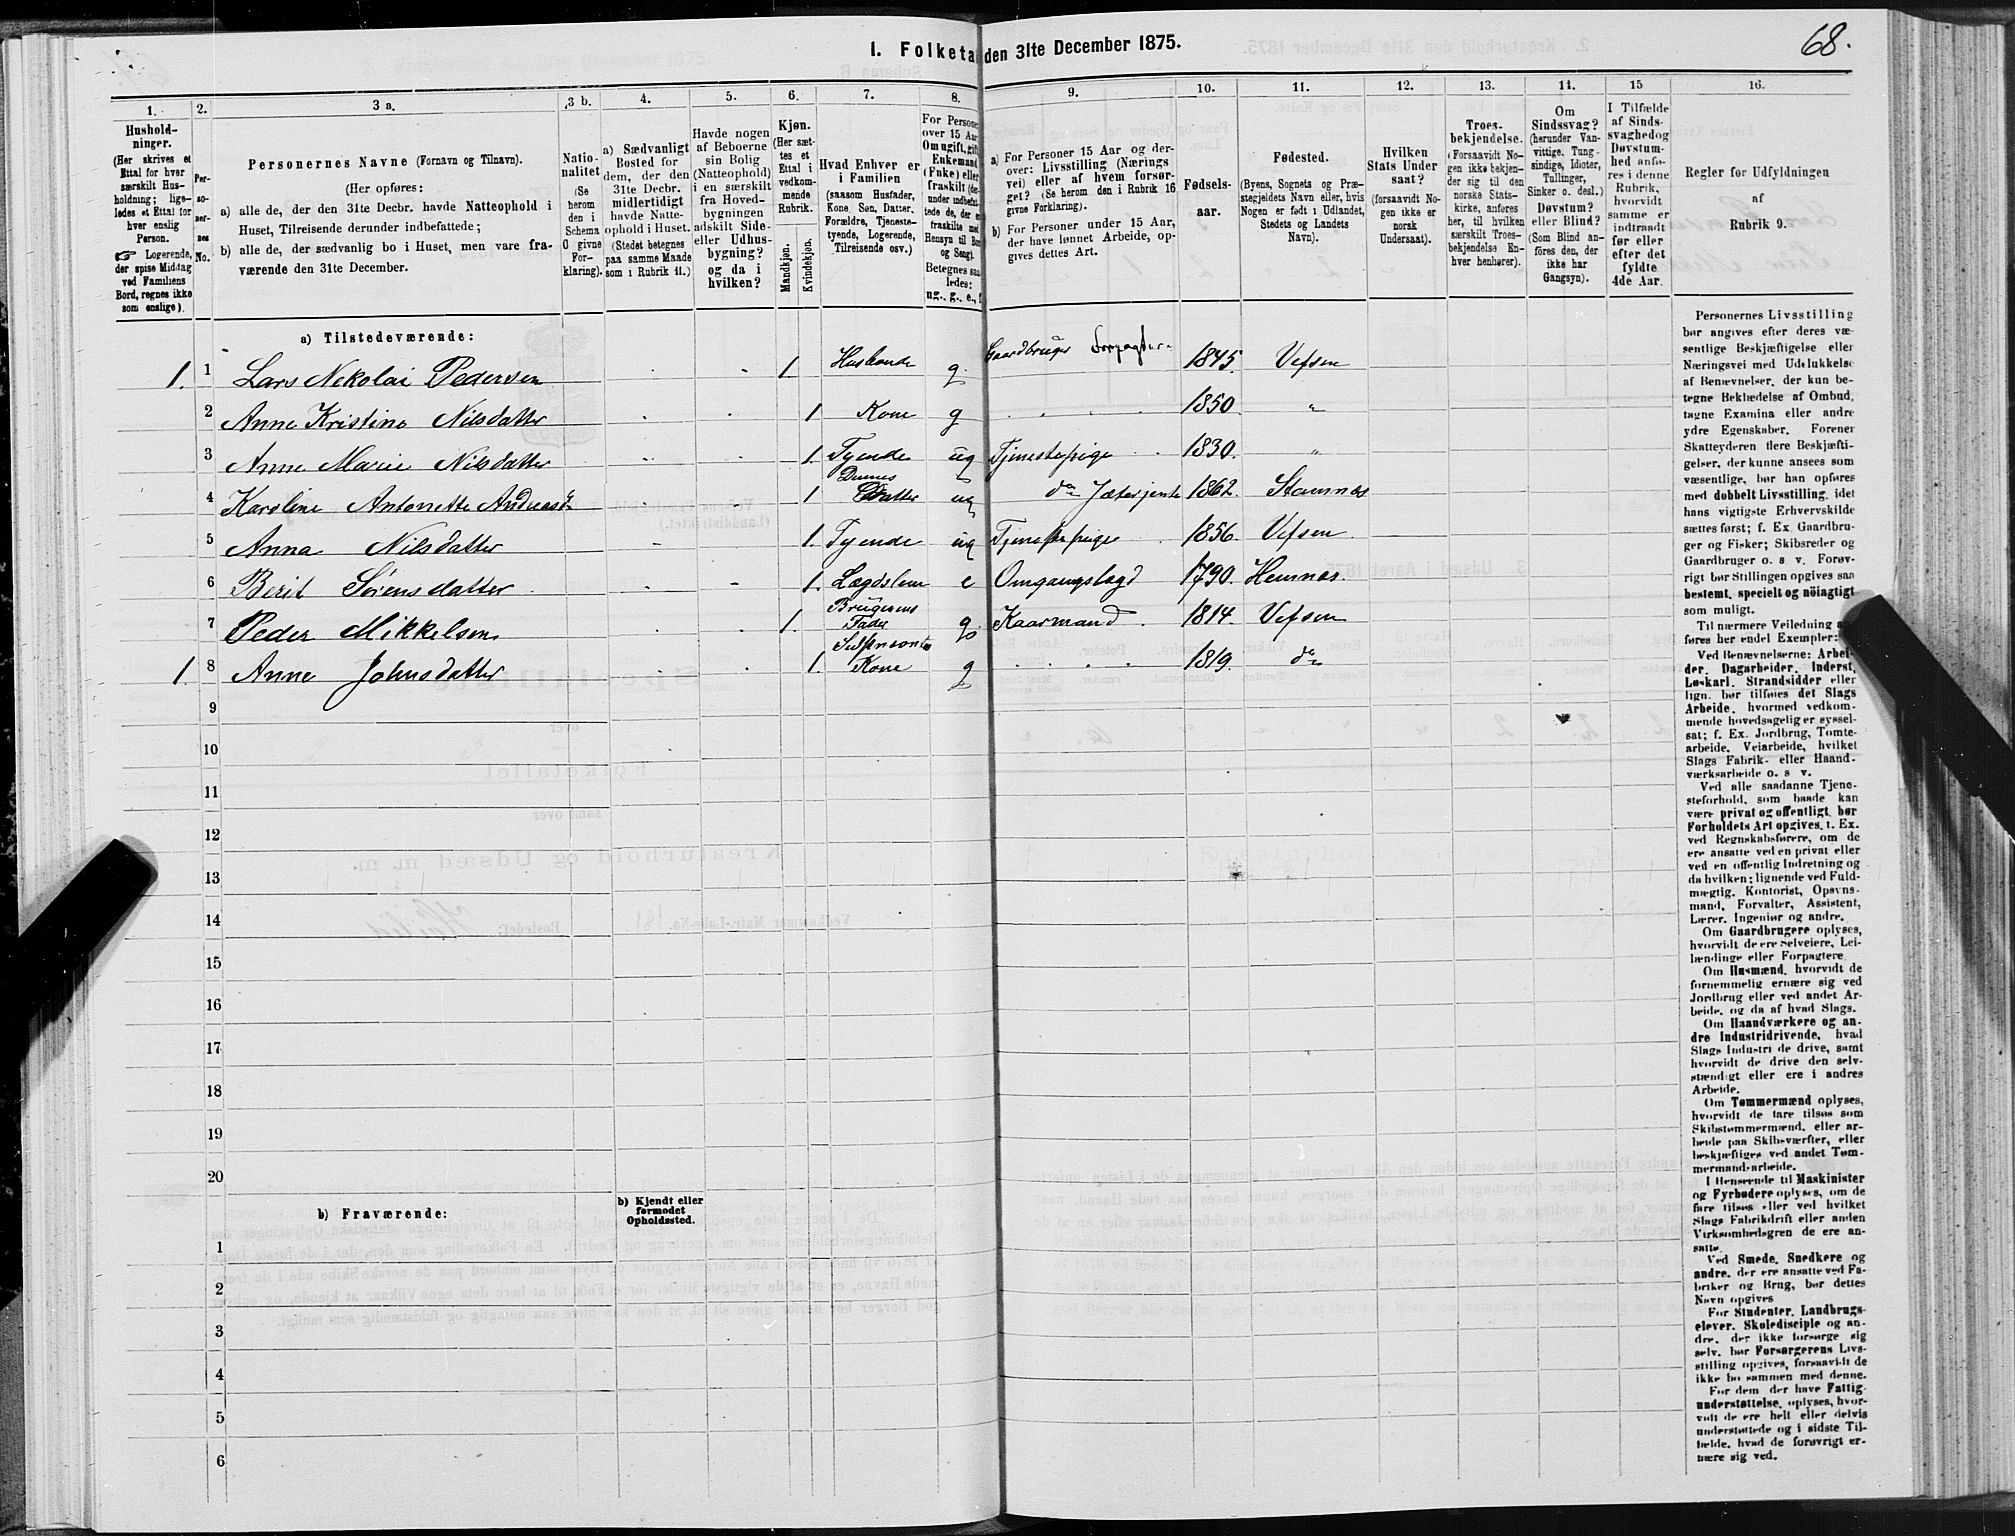 68.
I. Folketa den 31te December 1875.
1. 2. 3 a. 3 b. 4. 5. 6. 7. 8. 9. 10. 11. 12. 13. 14. 15 16.
Hushold-
ninger.
(Her skrives et
Ettal for hver
særskilt Hus-
holdning; lige-
ledes et Ettal for
hver enslig
Person.
☞ Logerende,
der spise Middag
ved Familiens
Bord, regnes ikke
som enslige).
Per-
so-
ner-
nes
No.
Personernes Navne (Fornavn og Tilnavn).
(Her opføres:
a) alle de, der den 31te Decbr. havde Natteophold i
Huset, Tilreisende derunder indbefattede;
b) alle de, der sædvanlig bo i Huset, men vare fra-
værende den 31te December.
Natio-
nalitet
(Se
herom
den i
Schema
O givne
For-
klaring).
a) Sædvanligt
Bosted for
dem, der den
31te Decbr.
midlertidigt
havde Natte-
ophold i Huset.
(Stedet betegnes
paa samme Maade
som i Rubrik 11.)
Havde nogen
af Beboerne
sin Bolig
(Natteophold)
i en særskilt
fra Hoved-
bygningen
adskilt Side-
eller Udhus-
bygning?
og da i
hvilken?
Kjøn.
(Her sæt-
tes et
Ettal i
vedkom-
mende
Rubrik.
Mandkjøn.
Kvindekjøn.
Hvad Enhver er
i Familien
(saasom Husfader,
Kone, Søn, Datter,
Forældre, Tjeneste-
tyende, Logerende,
Tilreisende osv.)
For Persone
over 15 Aar
Om ugift, gift
Enkemand
(Enke) eller
fraskilt (der-
under indbefat-
tede de, der e
fraskilte med
Hensyn til Bor
og Seng).
Betegnes saa
ledes:
ug., g., e., f
a) For Personer 15 Aar og der-
over: Livsstilling (Nærings
vei) eller af hvem forsør-
get? (Se herom den i Rubrik 16
givne Forklaring).
b) For Personer under 15 Aar,
der have lønnet Arbeide, op-
gives dettes Art.
Fødsels-
aar.
Fødested.
(Byens, Sognets og Præ-
stegjeldets Navn eller, hvis
Nogen er født i Udlandet,
Stedets og Landets
Navn).
Hvilken
Stats Under
saat?
(forsaavidt No-
gen ikke er
norsk
Undersaat).
Troes-
bekjendelse.
(Forsaavidt No-
gen ikke bekjen-
der sig til den
norske Stats-
kirke, anføres
her, til hvilken
særskilt Troes-
bekjendelse En-
hver henhører).
Om
Sindssvag?
(herunder Van-
vittige, Tung-
sindige, Idioter,
Tullinger,
Sinker o. desl.)
Døvstum?
eller Blind?
(Som Blind an-
føres den, der
ikke har
Gangsyn).
I Tilfælde
af Sinds-
svaghed og
Døvstum-
hed anfø-
res i denne
Rubrik,
hvorvidt
samme er
indtraadt
før eller
efter det
fyldte
4de Aar.
Regler for Udfyldningen
af
Rubrik 9.
a) Tilstedeværende:
1. 1 Lars Nekolai Pedersen 1 Husbonde g. Gaardbruger Forpagter 1845. Vefsen
2 Anne Kristine Nilsdatter 1. Kone g 1850. "
3 Anne Marie Nilsdatter 1. Tyende ug Tjenestepige 1830. "
4 Karoline Antonette Andreasd. 1 Dennes Datter ug do Jæterjente 1862. Stamnæs
5 Anna Nilsdatter 1. Tyende ug Tjenestepige 1856. Vefsen
6 Berit Sørensdatter 1. Lægdslem e Omgangslægd 1790. Hemnæs.
7 Peder Mikkelsen 1. Brugerens Fader g. Kaarmand 1814. Vefsen
1. 8 Anne Johnsdatter 1. Kone g 1819. do
9
10
11
12
13
14
15
16
17
18
19
20
b) Fraværende:
b) Kjendt eller
formodet
Opholdssted.
1
2
3
4
5
6
Personernes Livsstilling
bør angives efter deres væ-
sentlige Beskjæftigelse eller
Næringsvei med Udelukkelse
af Benævnelser, der kun be-
tegne Beklædelse af Ombud,
tagne Examina eller andre
ydre Egenskaber. Forener
Skatteyderen flere Beskjæfti-
gelser, der kunne ansees som
væsentlige, bør han opføres
med dobbelt Livsstilling, idet
hans vigtigste Erhvervskilde
sættes først; f. Ex. Gaardbru-
ger og Fisker; Skibsreder og
Gaardbruger o. s v. Forøv-
rigt bør Stillingen opgives saa
bestemt, specielt og nöiagtigt
som muligt.
Til nærmere Veiledning
føres her endel Exempler:
Ved Benævnelserne: Arbei-
der, Dagarbeider, Inderst,
Løskarl, Strandsidder eller
lign. bør tilføies det Slags
Arbeide, hvormed vedkom-
mende hovedsagelig er syssel-
sat; f. Ex. Jordbrug, Tomte-
arbeide, Veiarbeide, hvilket
Slags Fabrik- eller Haand-
værksarbeide o. s v.
Ved alle saadanne Tjene-
steforhold, som baade kan
være privat og offentligt, bør
Forholdets Art opgives, t. Ex.
ved Regnskabsførere, om de
ere ansatte ved en privat eller
ved en offentlig Indretning og
da hvilken; lignende ved Fuld-
mægtig, Kontorist, Opsyns-
mand, Forvalter, Assistent,
Lærer, Ingeniør og andre.
Om Gaardbrugere oplyses,
hvorvidt de ere Selveiere, Lei-
lændinge eller Forpagtere.
Om Husmænd, hvorvidt de
fornemmelig ernære sig ved
Jordbrug eller ved andet Ar-
beide, og da af hvad Slags.
Om Haandværkere og an-
dre Industridrivende, hvad
Slags Industri de drive, samt
hvorvidt de drive den selv-
stændigt eller ere i andres
Arbeide.
Om Tømmermænd oplyses,
hvorvidt de fare tilsøs som
Skibstømmermænd, eller ar-
beide paa Skibsværfter, eller
beskjæftiges ved andet Tøm-
mermandsarbeide.
I Henseende til Maskinister
og Fyrbødere oplyses, om de
fare tilsøs eller ved hvilket
Slags Fabrikdrift eller anden
Virksomhedsgren de ere an-
satte.
Ved Smede, Snedkere og
andre, der ere ansatte ved Fa-
briker og Brug, bør dettes
Navn opgives
For Studenter, Landbrugs-
elever, Skoledisciple og an-
dre, der ikke forsørge sig
selv, bør Forsørgerens Livs-
stilling opgives, forsaavidt de
ikke bo sammen med denne.
For dem, der have Fattig-
understøttelse, oplyses, hvor-
vidt de ere helt eller delvis
understøttede og i sidste Til-
fælde, hvad de forøvrigt er-
nære sig ved.